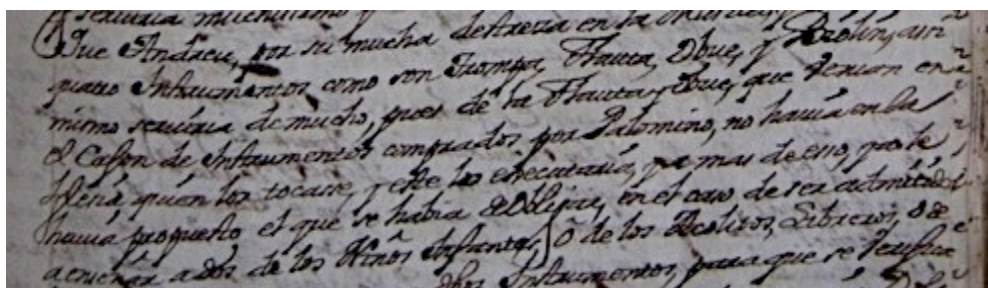 serviria muchissimo
Que Andreu, por su mucha destreza en la Musica,
quatro Instrumentos como son Trompa, Flauta, Obue, y Violin, aun
mismo serviria de mucho, pues de la Flauta, y Obue, que venian en
el Caxon de Instrumentos comprados por Palomino, no havia en la
quien los tocasse, y este los executaria, y a mas de esso, que le
havia propuesto el que se habia de obligar, en el caso de ser admitido
a enseñar a dos de los Niños Infantes, ò de los Acolitos, Libreros, o de
Instrumentos, para que se